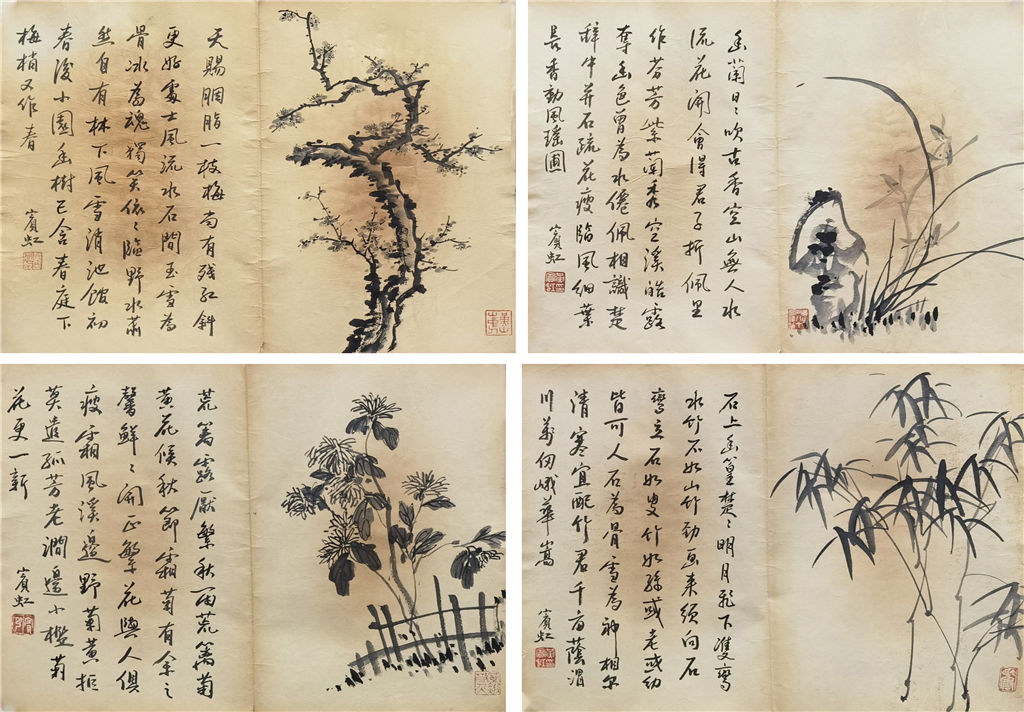 天賜胭脂一枝梅尚有殘紅斜
更好處士風流水石間玉雪為
骨冰為魂獨笑依〻臨野水蕭
然自有林下風雪消池館初
春後小園幽樹已含春庭下
梅梢又作春
賓虹
幽蘭日〻吹古香空山無人水
流花開會得君子折佩里
作芬芳紫蘭秀空溪皓露
奪幽色曾為水僊佩相識楚
辭中并石疏花瘦臨風細葉
長香動風瑤圃
賓虹
荒露厭繁秋雨荒籬菊
黃花候秋節霜菊有余之
馨鮮〻開正繁花與人俱
瘦霜風溪邊野菊黃拒
莫遺孤芳老澗邊小檻菊
花更一新
賓虹
石上幽篁楚〻明月飛下雙鸞
水竹不如山竹勁画來須向石
鸞立石如叟竹如孫或老或幼
皆可人石為骨雪為神相尔
清寒宜配竹君千畝蔭渭
川萬仞峨華嵩
賓虹